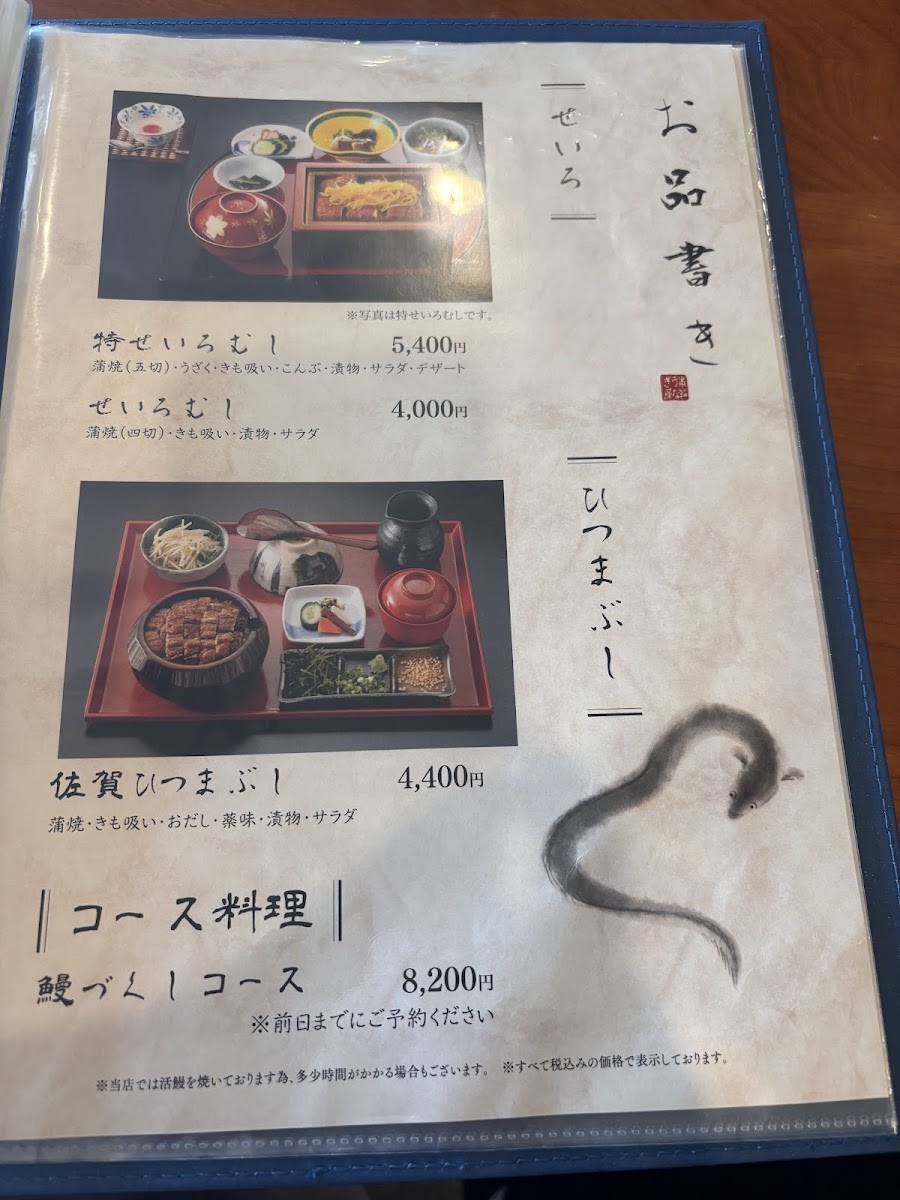 お品書き
せいろ
※写真は特せいろむしです。
特せいろむし 5,400円
蒲焼(五切)・うざく・きも吸い・こんぶ・漬物・サラダ・デザート
せいろむし 4,000円
蒲焼(四切)・きも吸い・漬物・サラダ
ひつまぶし
佐賀ひつまぶし 4,400円
蒲焼・きも吸い・おだし・薬味・漬物・サラダ
コース料理
鰻づくしコース 8,200円
※前日までにご予約ください
※当店では活鰻を焼いております為、多少時間がかかる場合もございます。 ※すべて税込みの価格で表示しております。